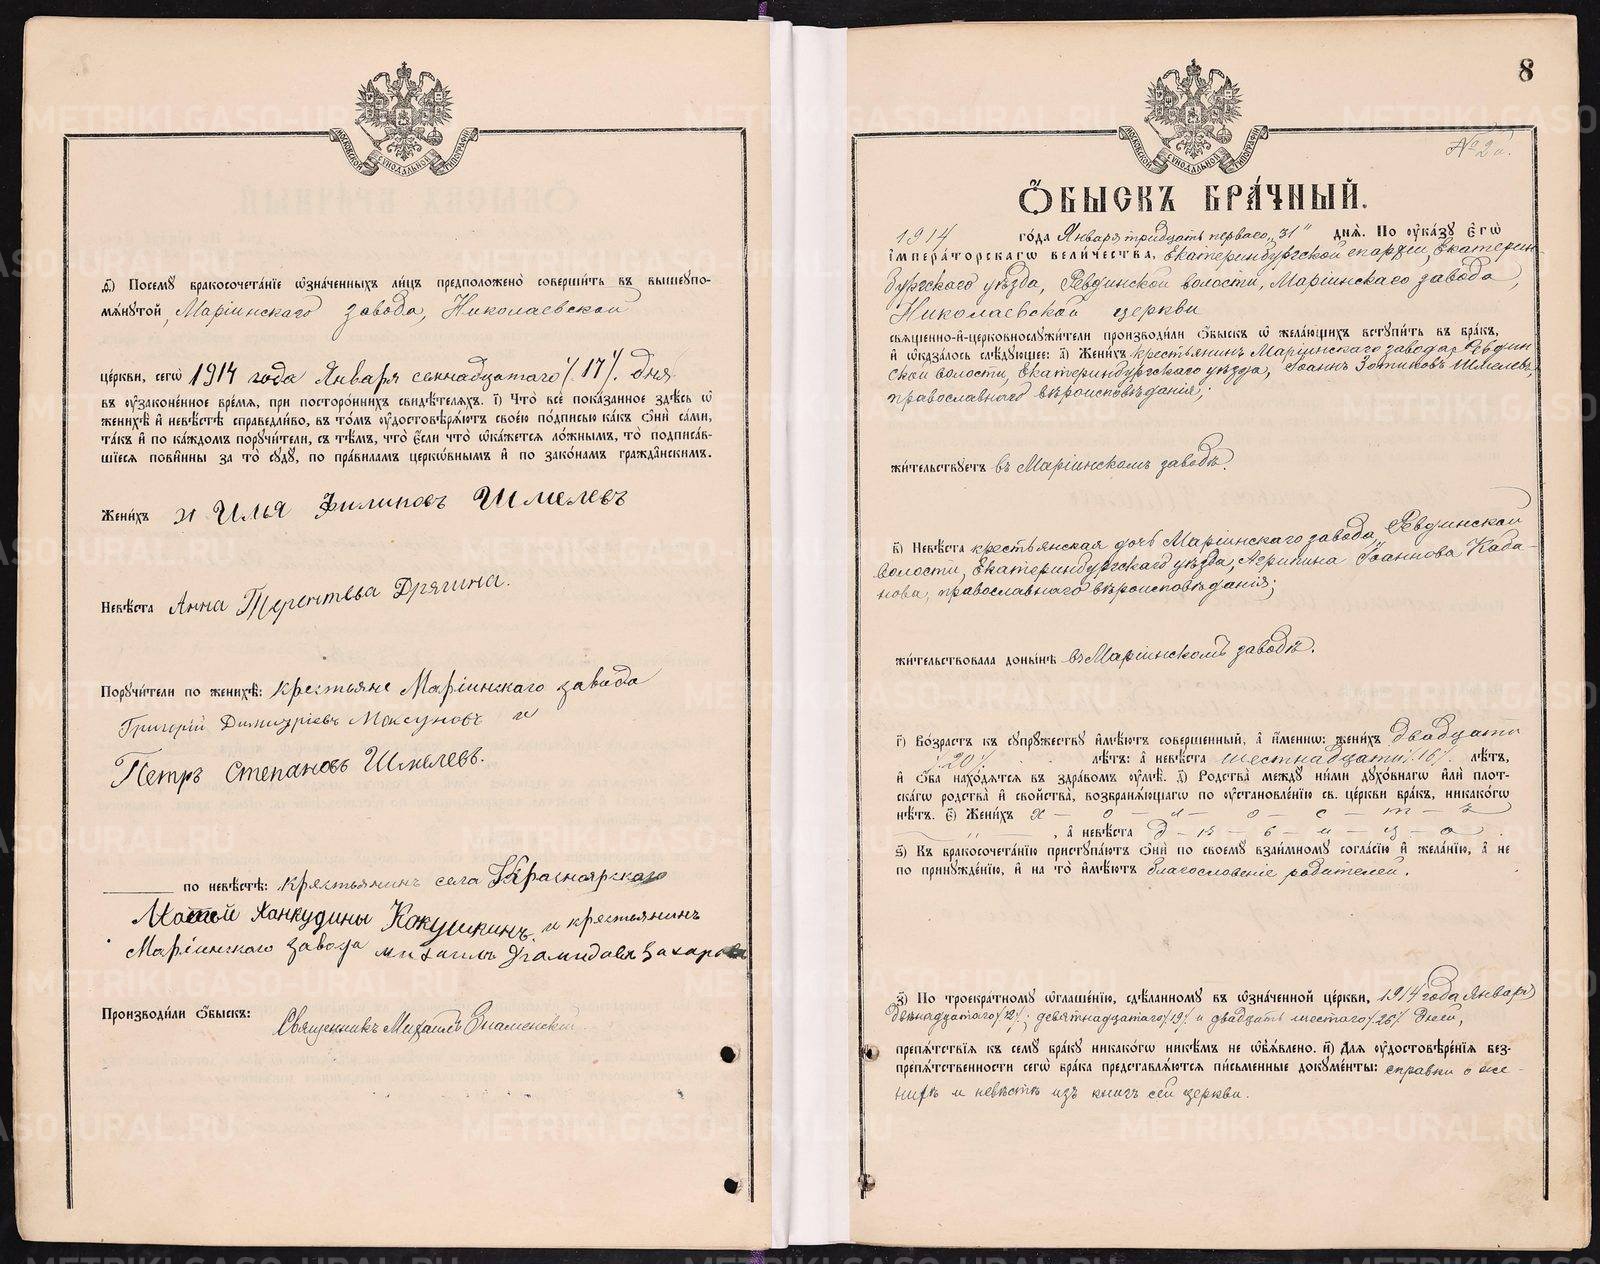 МОСКОВСКОЙ СѴНОДАЛЬНОЙ ТИПОГРАФІИ
д҃) Посемꙋ бракосочета́нїе ѡ҆зна́ченныхъ ли́цъ предположено̀ соверши́ть въ вышеꙋпо-
мѧ́нꙋтой, Марiинскаго завода, Николаевской
це́ркви, сегѡ̀ 1914 года Января семнадцатаго /17/. дня
въ ᲂу҆зако́ненное вре́мѧ, при посторо́ннихъ свидѣ́телѧхъ. і҃) Что̀ всѐ пока́занное здѣ́сь ѡ҆
женихѣ̀ и҆ невѣ́стѣ справедли́во, въ то́мъ ᲂу҆достовѣрѧ́ютъ свое́ю по́дписью ка́къ ѻ҆нѝ са́ми,
та́къ и҆ по ка́ждомъ порꙋчи́тели, съ тѣ́мъ, что̀ є҆́сли что̀ ѡ҆ка́жетсѧ ло́жнымъ, то̀ подписа́в-
шїесѧ пови́нны за то̀ сꙋдꙋ̀, по пра́виламъ церко́внымъ и҆ по зако́намъ гражда́нскимъ.
Жени́хъ Илья Филиповъ Шмелевъ
Невѣ́ста Анна Терентьева Дрягина.
Порꙋчи́тели по женихѣ̀: крестьяне Марiинскаго завода
Григорiй Димитрiевъ Моксуновъ и
Петръ Степановъ Шмелевъ.
по невѣ́стѣ: крестьянинъ села Красноярскаго
Анкудины Кокушкинъ. и крестьянинъ
Марiинскаго завода михаилъ Захаровъ
Производи́ли ѻ҆́быскъ: Священникъ Михаилъ Знаменскiй
8
МОСКОВСКОЙ СѴНОДАЛЬНОЙ ТИПОГРАФІИ
№ 2й.
Ѻ҆́БЫСКЪ БРА́ЧНЫЙ.
1914 го́да Января тридцать перваго „31“ днѧ̀. По ᲂу҆ка́зꙋ Є҆гѡ̀
І҆мпера́торскагѡ вели́чества, Екатеринбургской епархiи, Екатерин-
бургскаго уѣзда, Ревдинской волости, Марiинскаго завода,
Николаевской церкви
свѧще́нно-и҆-церковнослꙋжи́тели производи́ли ѻ҆́быскъ ѡ҆ жела́ющихъ встꙋпи́ть въ бра́къ,
и҆ ѡ҆каза́лось слѣ́дꙋющее: а҃) Жени́хъ крестьянинъ Марiинскаго завода, Ревдин
ской волости, Екатеринбургскаго уѣзда, Iоаннъ Зотиковъ Шмелевъ,
православнаго вѣроисповѣданiя;
жи́тельствꙋетъ въ Марiинскомъ заводѣ.
в҃) Невѣ́ста крестьянская дочь Марiинскаго завода, Ревдинской
волости, Екатеринбургскаго уѣзда, Агрипина Iоаннова Каба-
нова, православнаго вѣроисповѣданiя;
жи́тельствовала доны́нѣ въ Марiинскомъ заводѣ.
г҃) Во́зрастъ къ сꙋпрꙋ́жествꙋ и҆мѣ́ютъ соверше́нный, а҆ и҆́меннѡ: жени́хъ двадцати
/20/. лѣ́тъ: а҆ невѣ́ста шестнадцати /16/. лѣ́тъ,
и҆ ѻ҆́ба нахо́дѧтсѧ въ здра́вомъ ᲂу҆мѣ̀. д҃) Родства̀ междꙋ ни́ми дꙋхо́внагѡ и҆лѝ пло́т-
скагѡ родства̀ и҆ свойства̀, возбранѧ́ющагѡ по ᲂу҆становле́нїю св. це́ркви бра́къ, никако́гѡ
нѣ́тъ. є҃) Жени́хъ х — о — л — о — с — т — ъ
, а҆ невѣ́ста д — ѣ — в — и — ц — а
ѕ҃) Къ бракосочета́нїю пристꙋпа́ютъ ѻ҆нѝ по своемꙋ̀ взаи́мномꙋ согла́сїю и҆ жела́нїю, а҆ не
по принꙋжде́нїю, и҆ на то̀ и҆мѣ́ютъ благословенiе родителей.
з҃) По троекра́тномꙋ ѡ҆глаше́нїю, сдѣ́ланномꙋ въ ѡ҆зна́ченной це́ркви, 1914 года Января
двѣнадцатаго /12/., девятнадцатаго /19/. и двадцать шестаго /26/. дней,
препѧ́тствїѧ къ семꙋ̀ бра́кꙋ никако́гѡ никѣ́мъ не ѡ҆б̾ѧ́влено. и҃) Для ᲂу҆достовѣре́нїѧ без-
препѧ́тственности сегѡ̀ бра́ка представлѧ́ютсѧ пи́сьменные докꙋме́нты: справки о же-
нихѣ и невѣстѣ изъ книгъ сей церкви.
METRIKI.GASO-URAL.RU